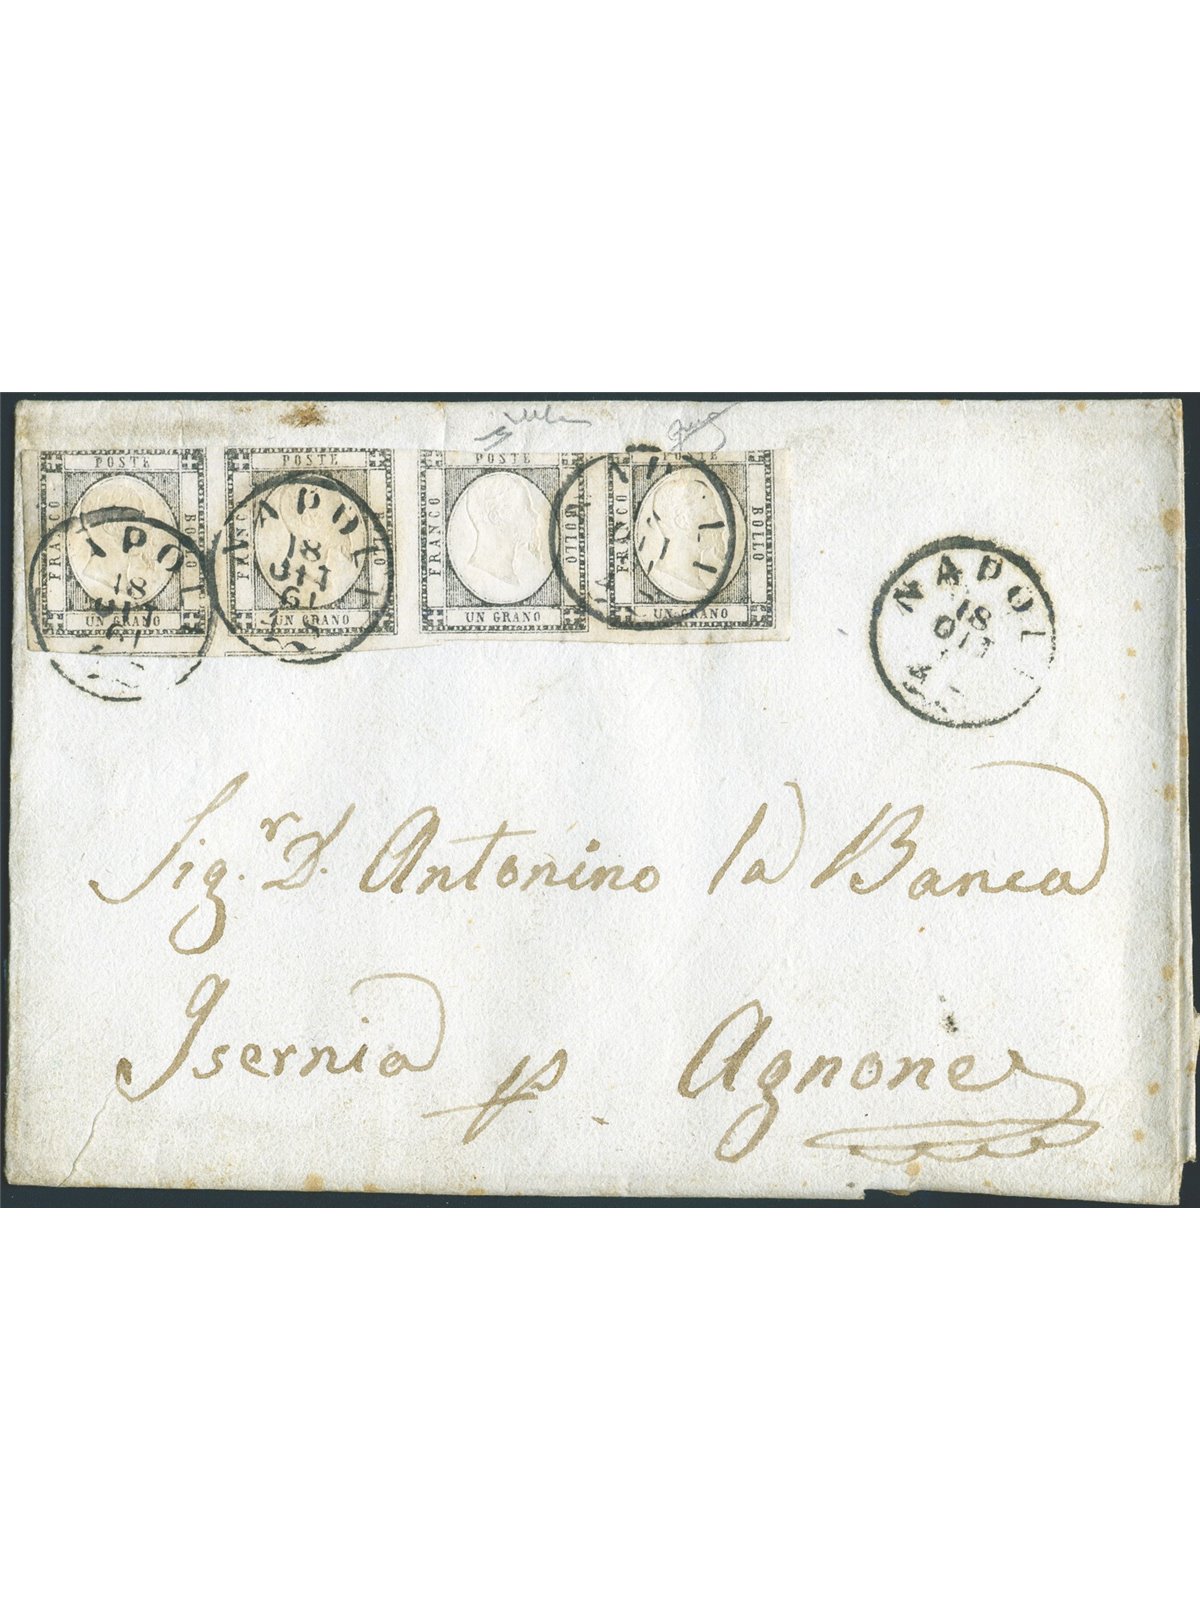 POSTE POSTE POSTE POSTE
FRANCO BOLLO FRANCO BOLLO FRANCO BOLLO FRANCO BOLLO
UN GRANO UN GRANO UN GRANO UN GRANO
NAPOLI
18
OTT
61
NAPOLI
18
OTT
Sig.r D. Antonino la Banca
Isernia p. Agnone